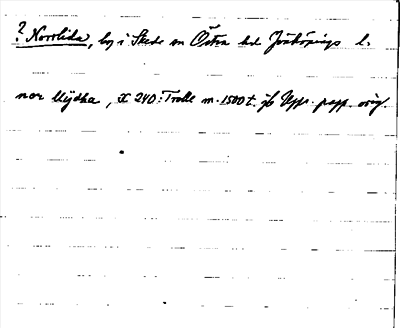 ? Norrlida, by i Skede sn Östra hd Jönköpings l.
nor Lijdha, X 240: Trolle m. 1500 t. jb Upps. papp. orig.